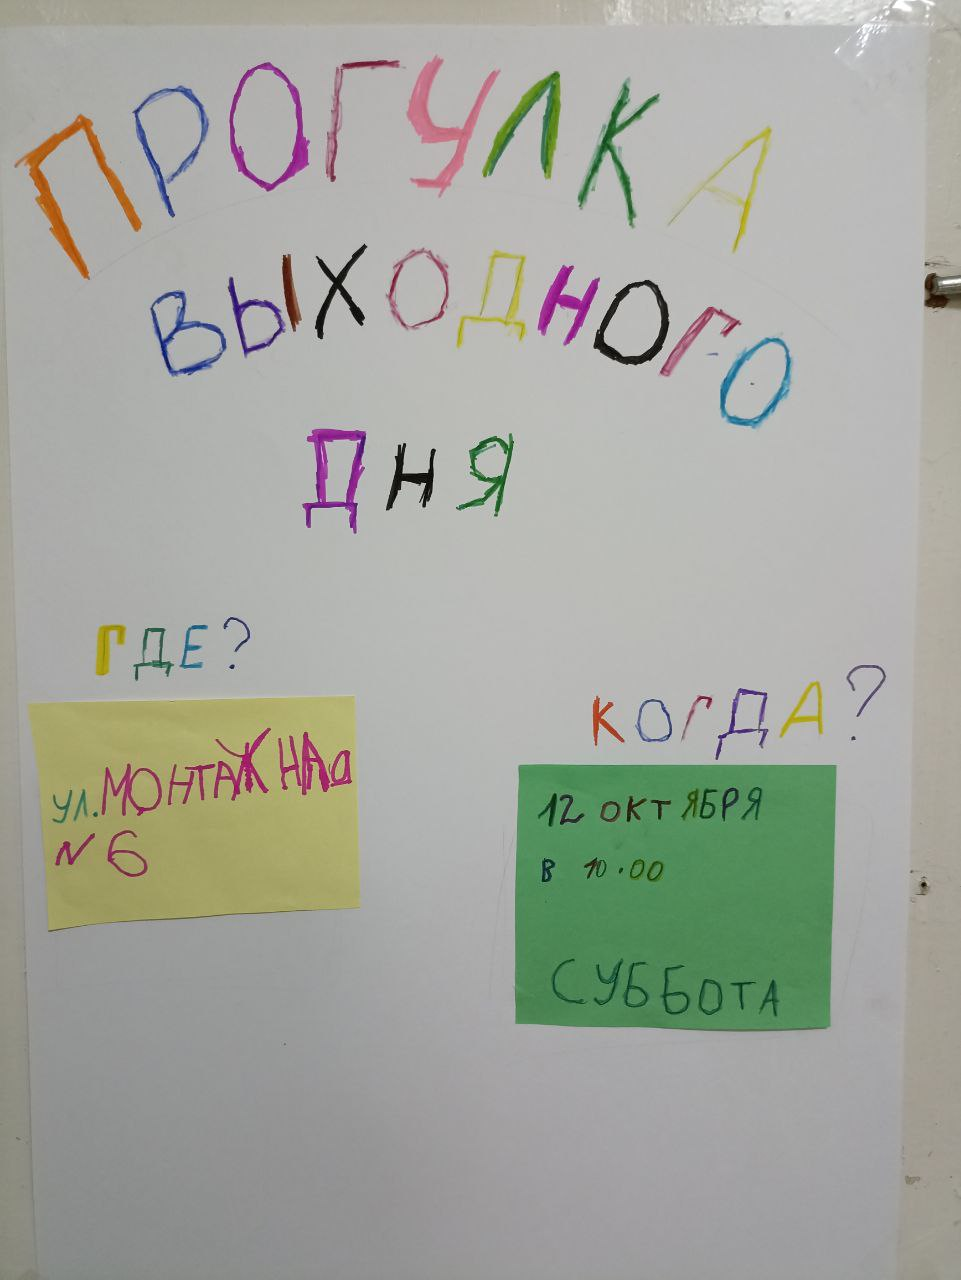 ПРОГУЛКА
ВЫХОДНОГО
ДНЯ
ГДЕ?
ул. МОНТАЖНАЯ
N 6
КОГДА?
12 ОКТЯБРЯ
В 10.00
СУББОТА